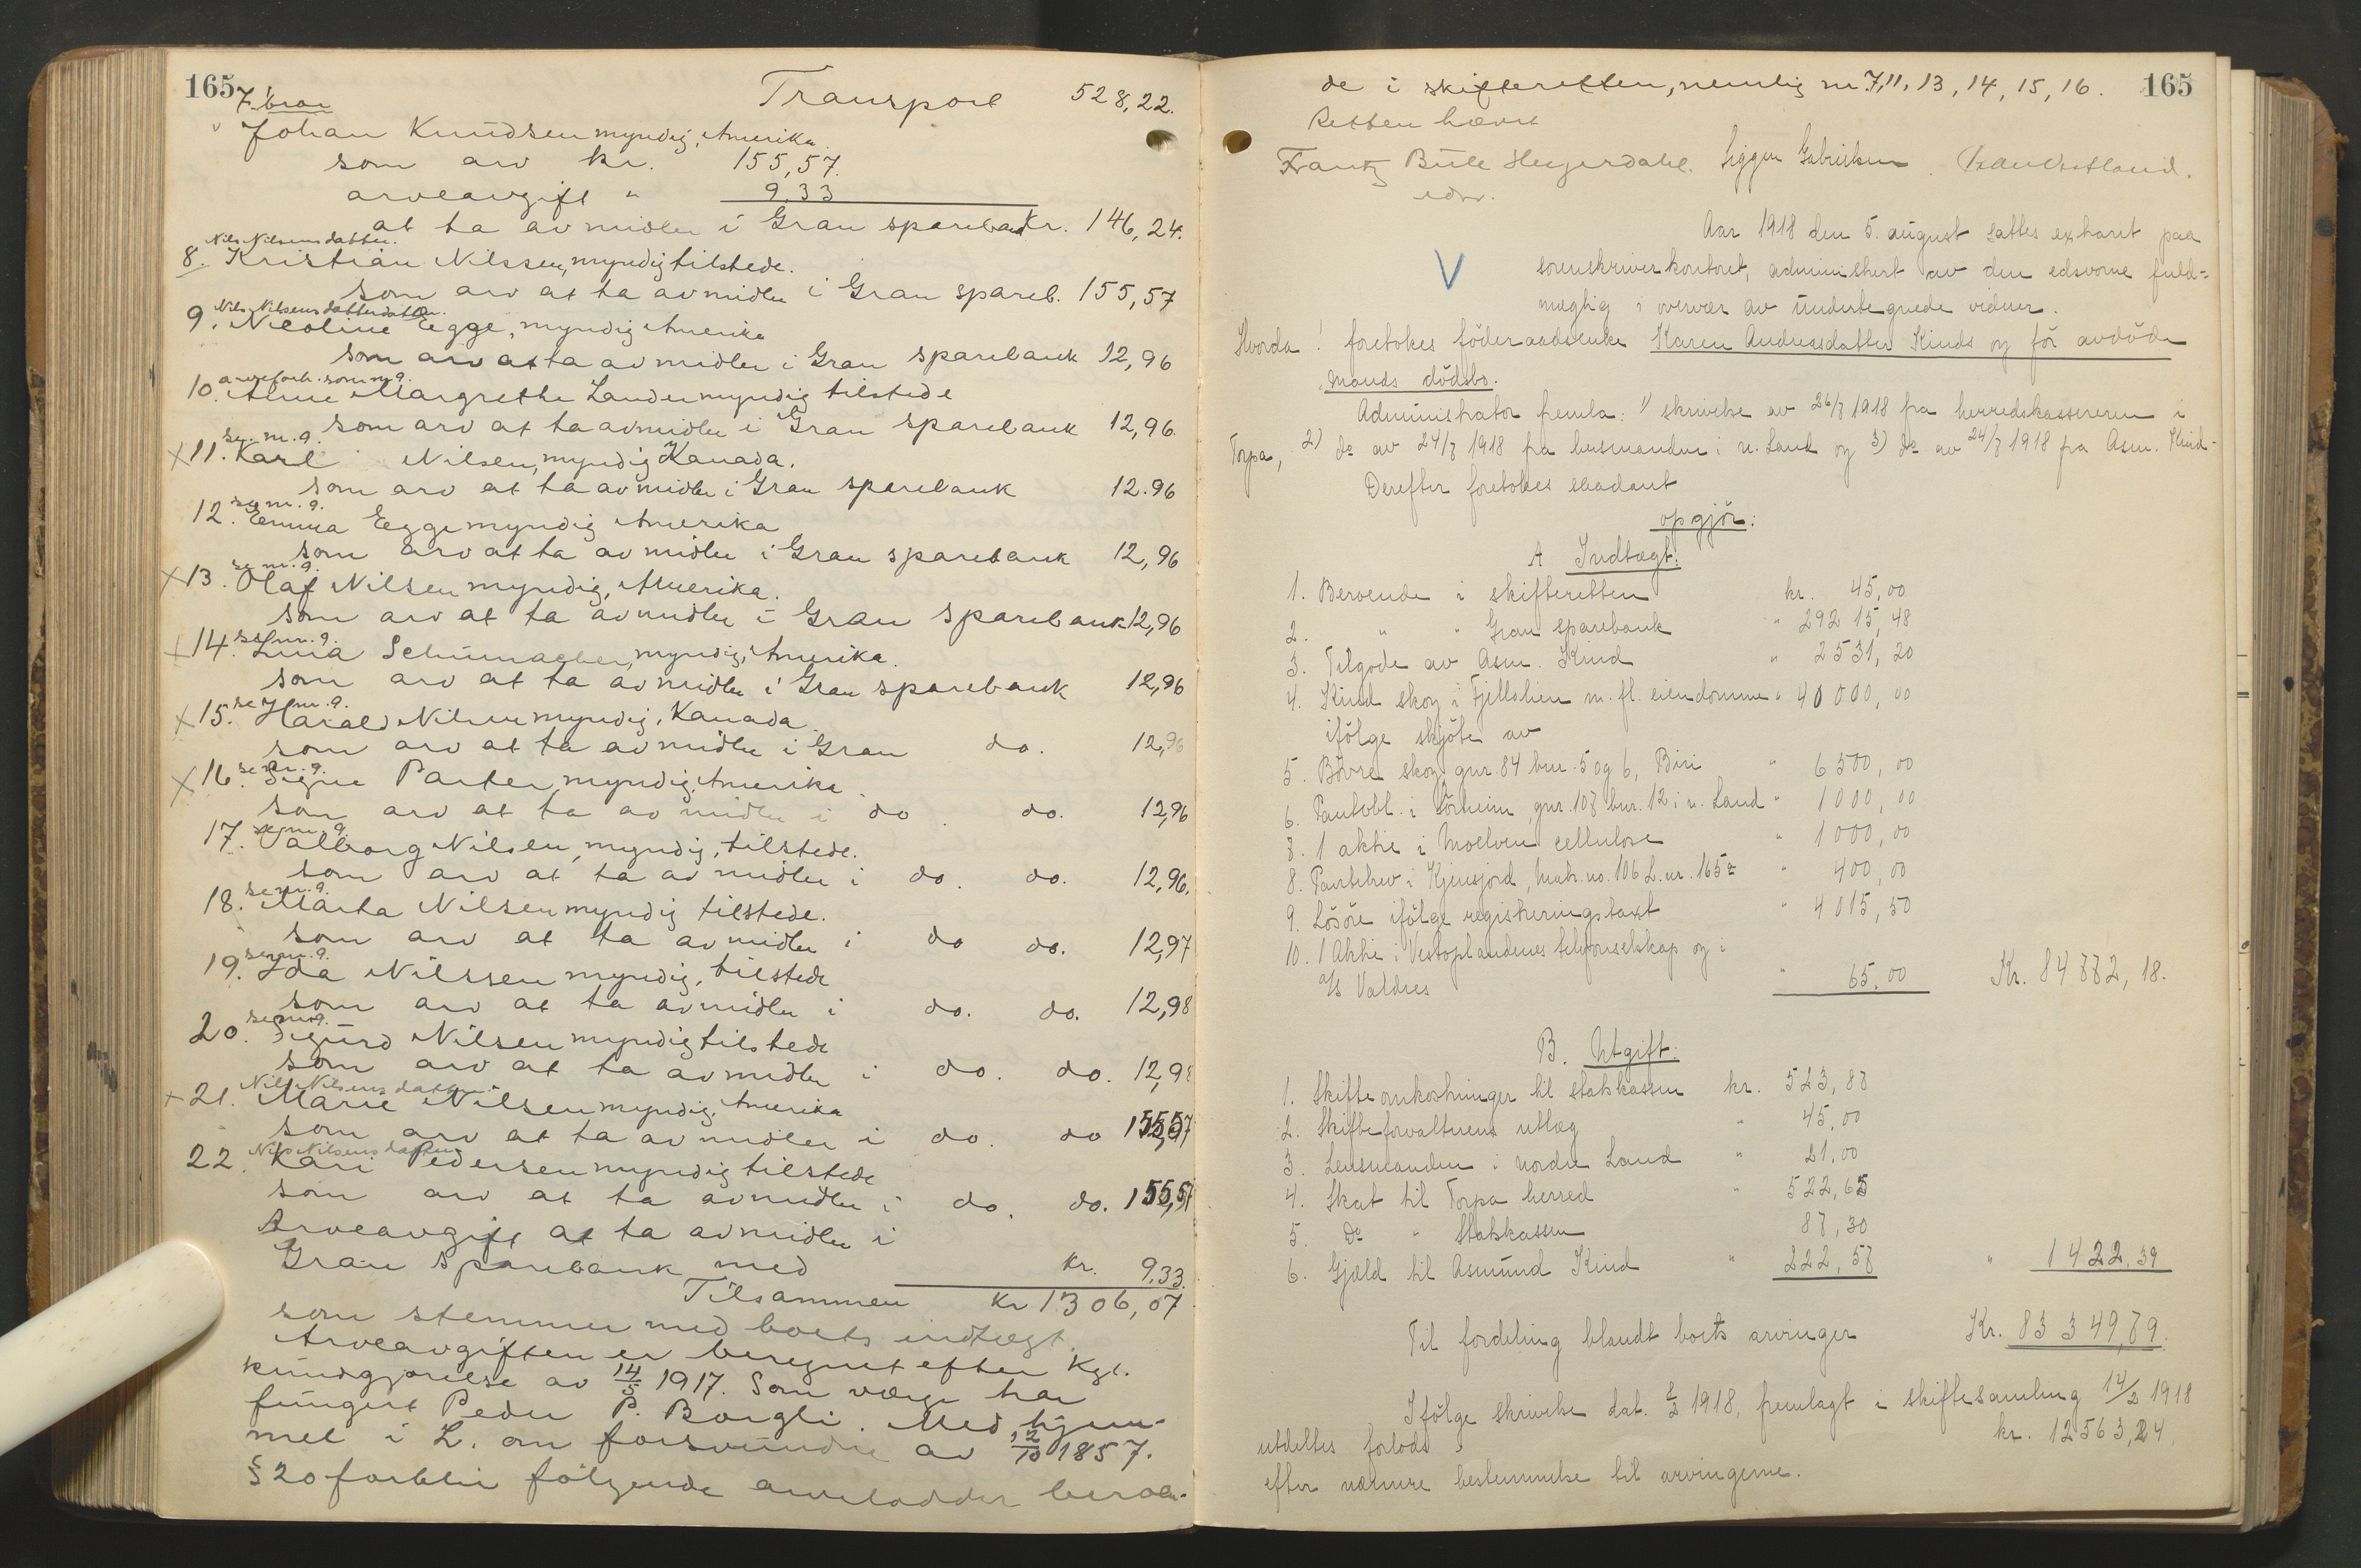 165
Transport 528,22.
7. bror
Johan Knudsen myndig, Amerika.
som arv kr. 155,57.
arveavgift " 9,33
at ta av midler i Gran sparebank kr. 146,24.
Nils Nilsens datter.
8. Kristian Nilssen, myndig tilstede.
som arv at ta av midler i Gran spareb. 155,57
Nils Nilsens datterdatter.
9. Nicoline Egge, myndig Amerika
som arv at ta av midler i Gran sparebank 12,96
arveforh. som nr. 9.
10. Anne Margrethe Lander myndig tilstede
som arv at ta av midler i Gran sparebank 12,96.
se nr. 9.
x 11. Karl Nilsen, myndig Kanada.
som arv at ta av midler i Gran sparebank 12.96
se nr. 9.
12. Emma Egge myndig Amerika
som arv at ta av midler i Gran sparebank 12,96
se nr. 9.
x 13. Olaf Nilsen myndig, Amerika.
som arv at ta av midler i Gran sparebank 12,96
se nr. 9.
x 14. Lina Schumacher, myndig, Amerika.
som arv at ta av midler i Gran sparebank 12,96
se nr. 9.
x 15. Harald Nilsen myndig, Kanada
som arv at ta av midler i Gran do. 12,96
se nr. 9.
x 16. Signe Parter myndig, Amerika.
som arv at ta av midler i do. do. 12,96
se nr. 9.
17. Valborg Nilsen, myndig, tilstede.
som arv at ta av midler i do. do. 12,96.
se nr. 9.
18. Marta Nilsen myndig tilstede.
som arv at ta av midler i do do. 12,97
se nr. 9.
19. Ida Nilssen myndig, tilstede
som arv at ta av midler i do. do. 12,98
se nr. 9.
20. Sigurd Nilsen myndig tilstede
som arv at ta av midler i do. do. 12,98
Nils Nilsens datter.
x 21. Marie Nilsen myndig, Amerika
som arv at ta av midler i do. do 155,57
Nils Nilsens datter
22. Kari Pedersen myndig tilstede
som arv at ta av midler i do. do. 155,57
Arveavgift at ta av midler i
Gran Sparebank med kr. 9.33.
Tilsammen kr 1306,07
som stemmer med boets indtægt.
Arveavgiften er beregnet efter Kgl.
kundgjørelse av 14/5 1917. Som værge har
fungert Peder P. Borgli. Med hjem-
mel i L. om forsvundne av 12/10 1857.
§ 20 forblir følgende arvelodder beroen-
de i skifteretten, nemlig nr. 7, 11, 13, 14, 15, 16. 165
Retten hævet
Frantz Bull Heyerdahl. Sigger Gabrielsen
edsv.
Aar 1918 den 5. august sattes extraret paa
V sorenskriverkontoret, administrert av den edsvorne fuld-
mægtig i overvær av undertegnede vidner.
Hvorda! foretokes föderaadsenke Karen Andersdatter Kinds og för avdöde
mands dödsbo.
Administrator fremla: 1) skrivelse av 26/7 1918 fra herredskassereren i
Torpa, 2) do av 24/7 1918 fra lensmanden i n. Land og 3) do av 24/7 1918 fra Asm. Kind-
Derefter foretokes saadant
opgjör:
A Indtægt:
1. Beroende i skifteretten kr. 45,00
2. " " Gran sparebank " 29215,48
3. Tilgode av Asm. Kind " 2531,20
4. Kind skog i Fjellslien m. fl. eiendomme " 40000,00
ifölge skjöte av
5. Bövre skog gnr. 84 bnr. 5 og 6, Biri " 6500,00
6. Pantobl. i Sörheim, gnr. 107 bnr. 12 i n. Land " 1000,00
7. 1 aktie i Moelven cellulose " 1000,00
8. Pantebrev i Kjensjord, Matr. no. 106 L. nr. 165a " 400,00
9. Lösöre ifölge registreringstaxt " 4015,50
10. 1 Aktie i Vestoplandenes telefonselskap og i
A/S Valdres " 65,00 Kr. 84772,18.
B. Utgift:
1. Skifteomkostninger til statskassen kr. 523,87
2. Skifteforvalterens utlæg " 45,00
3. Lensmanden i Nordre Land " 21,00
4. Skat til Torpa herred " 522,65
5. do " Statskassen 87,30
6. Gjæld til Asmund Kind " 222,57 " 1422,39
Til fordeling blandt boets arvinger Kr. 83349,79.
Ifölge skrivelse dat. 2/2 1918, fremlagt i skiftesamling 14/2 1918
utdeltes forlods kr. 12563,24.
efter nærmere bestemmelse til arvingerne.